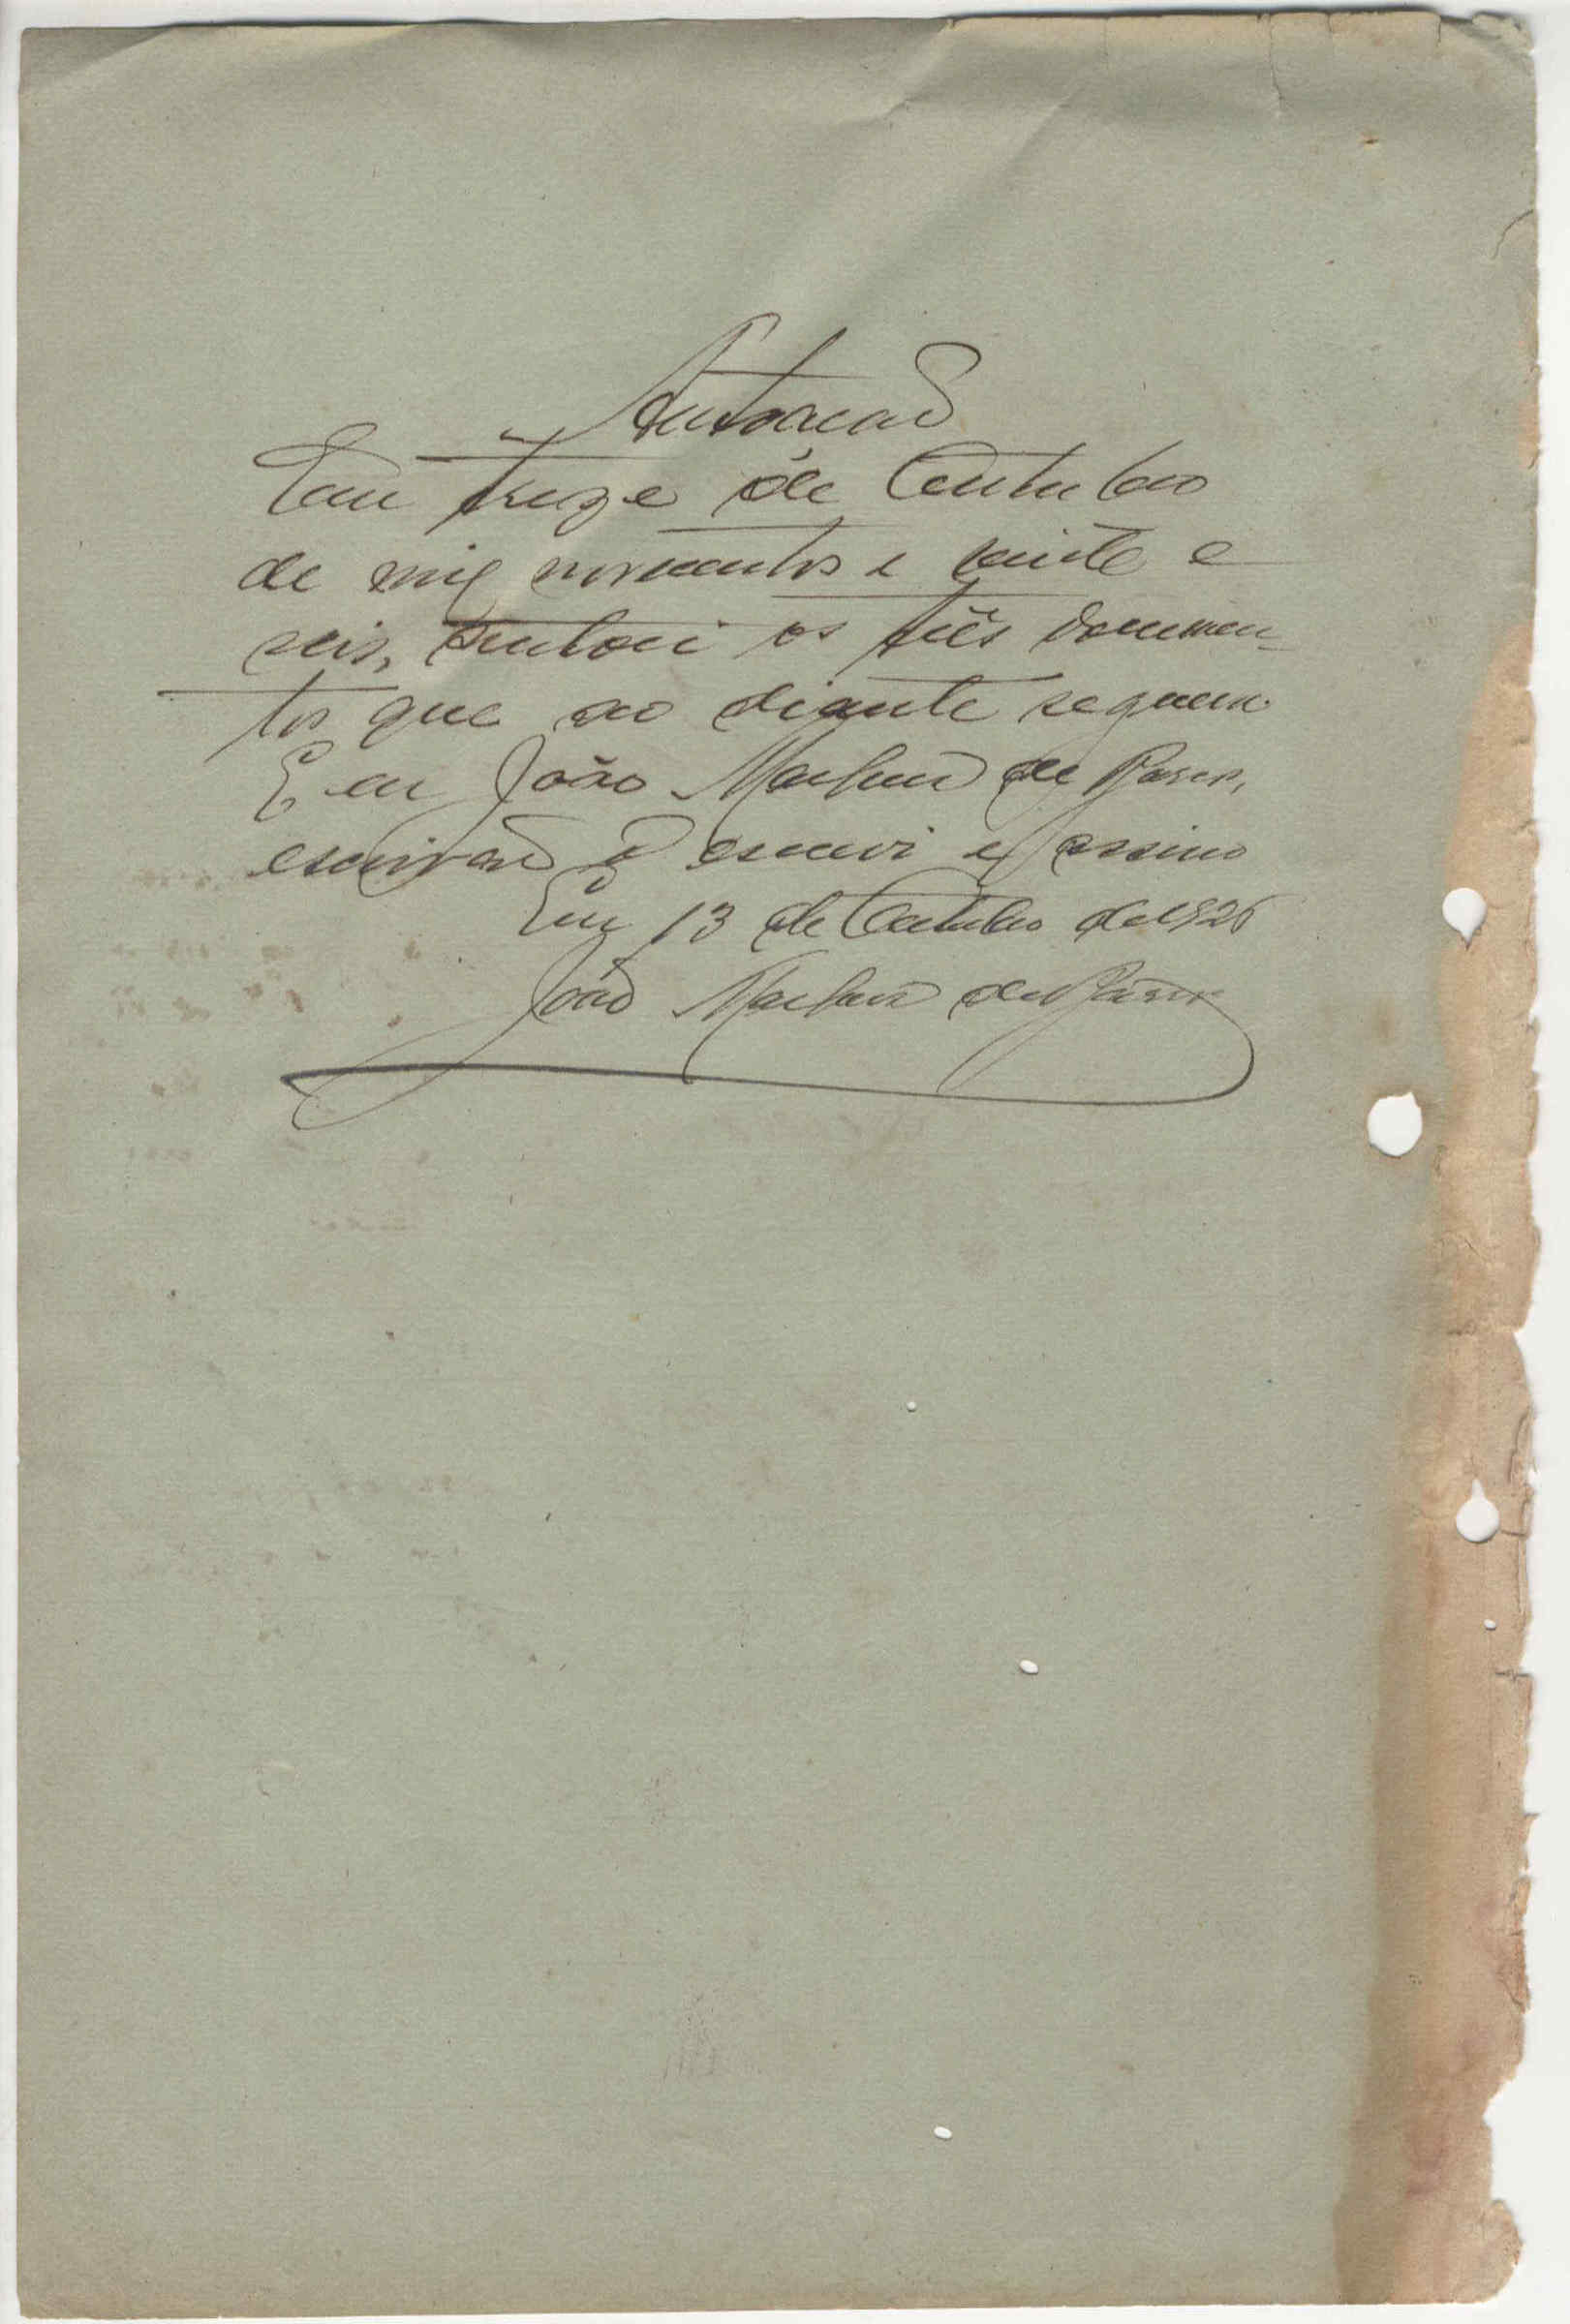 Autoação
Em treze de Outubro
de mil novecentos e vinte e
seis, autoei os três documen-
tos que ao diante seguem.
E eu João Machado de
escrivão o escrevi e assino
Em 13 de Outubro de 1926
João Machado de